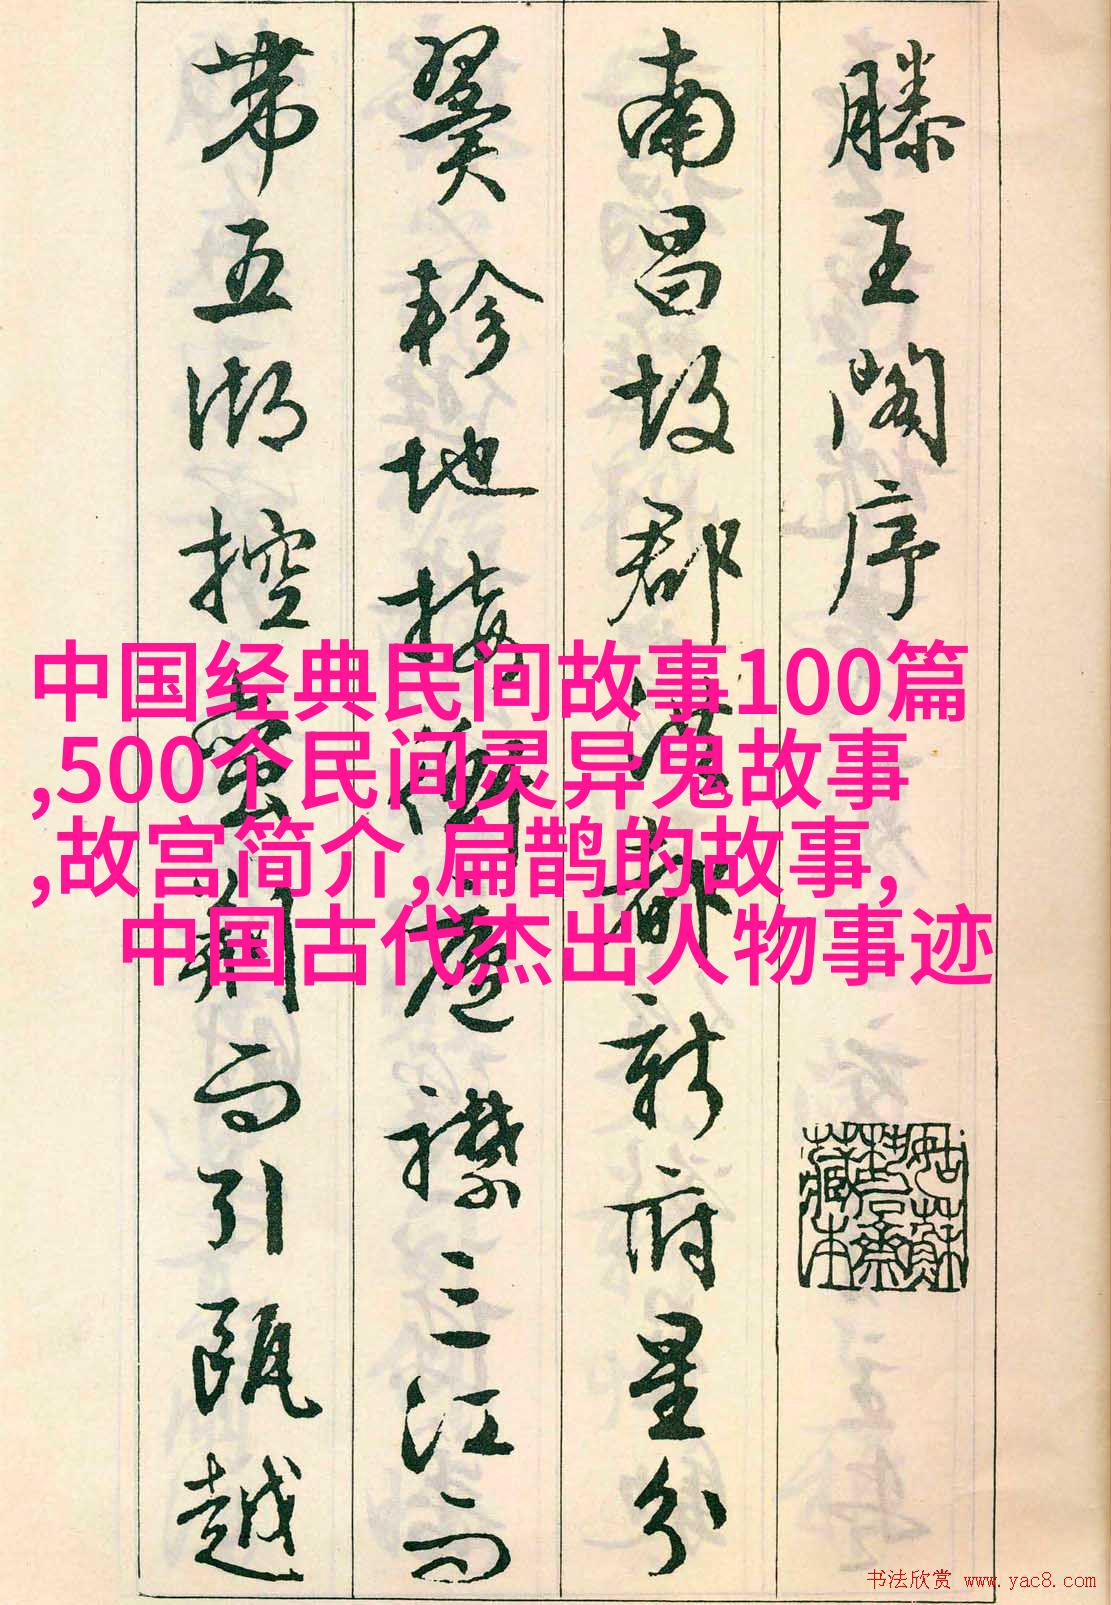 滕王閣序
南昌故郡洪都新府星分
翼軫地接衡廬襟三江而
帶五湖控蠻荊而引甌越
中国经典民间故事100篇
,500个民间灵异鬼故事
,故宫简介,扁鹊的故事,
中国古代杰出人物事迹
书法欣赏 www.yac8.com